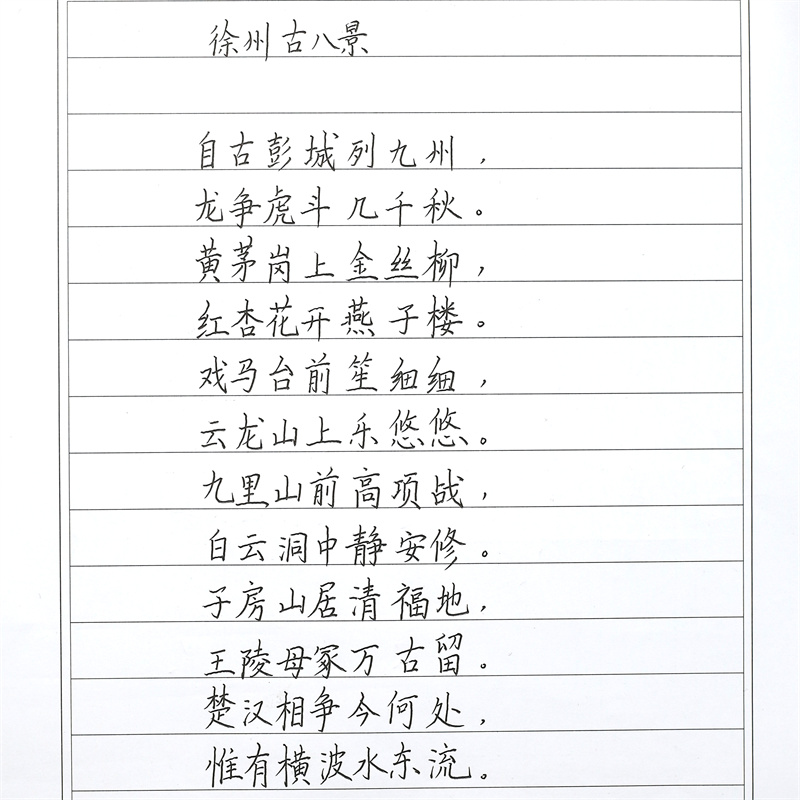 徐州古八景
自古彭城列九州，
龙争虎斗几千秋。
黄茅岗上金丝柳，
红杏花开燕子楼。
戏马台前笙细细，
云龙山上乐悠悠。
九里山前高项战，
白云洞中静安修。
子房山居清福地，
王陵母冢万古留。
楚汉相争今何处，
惟有横波水东流。